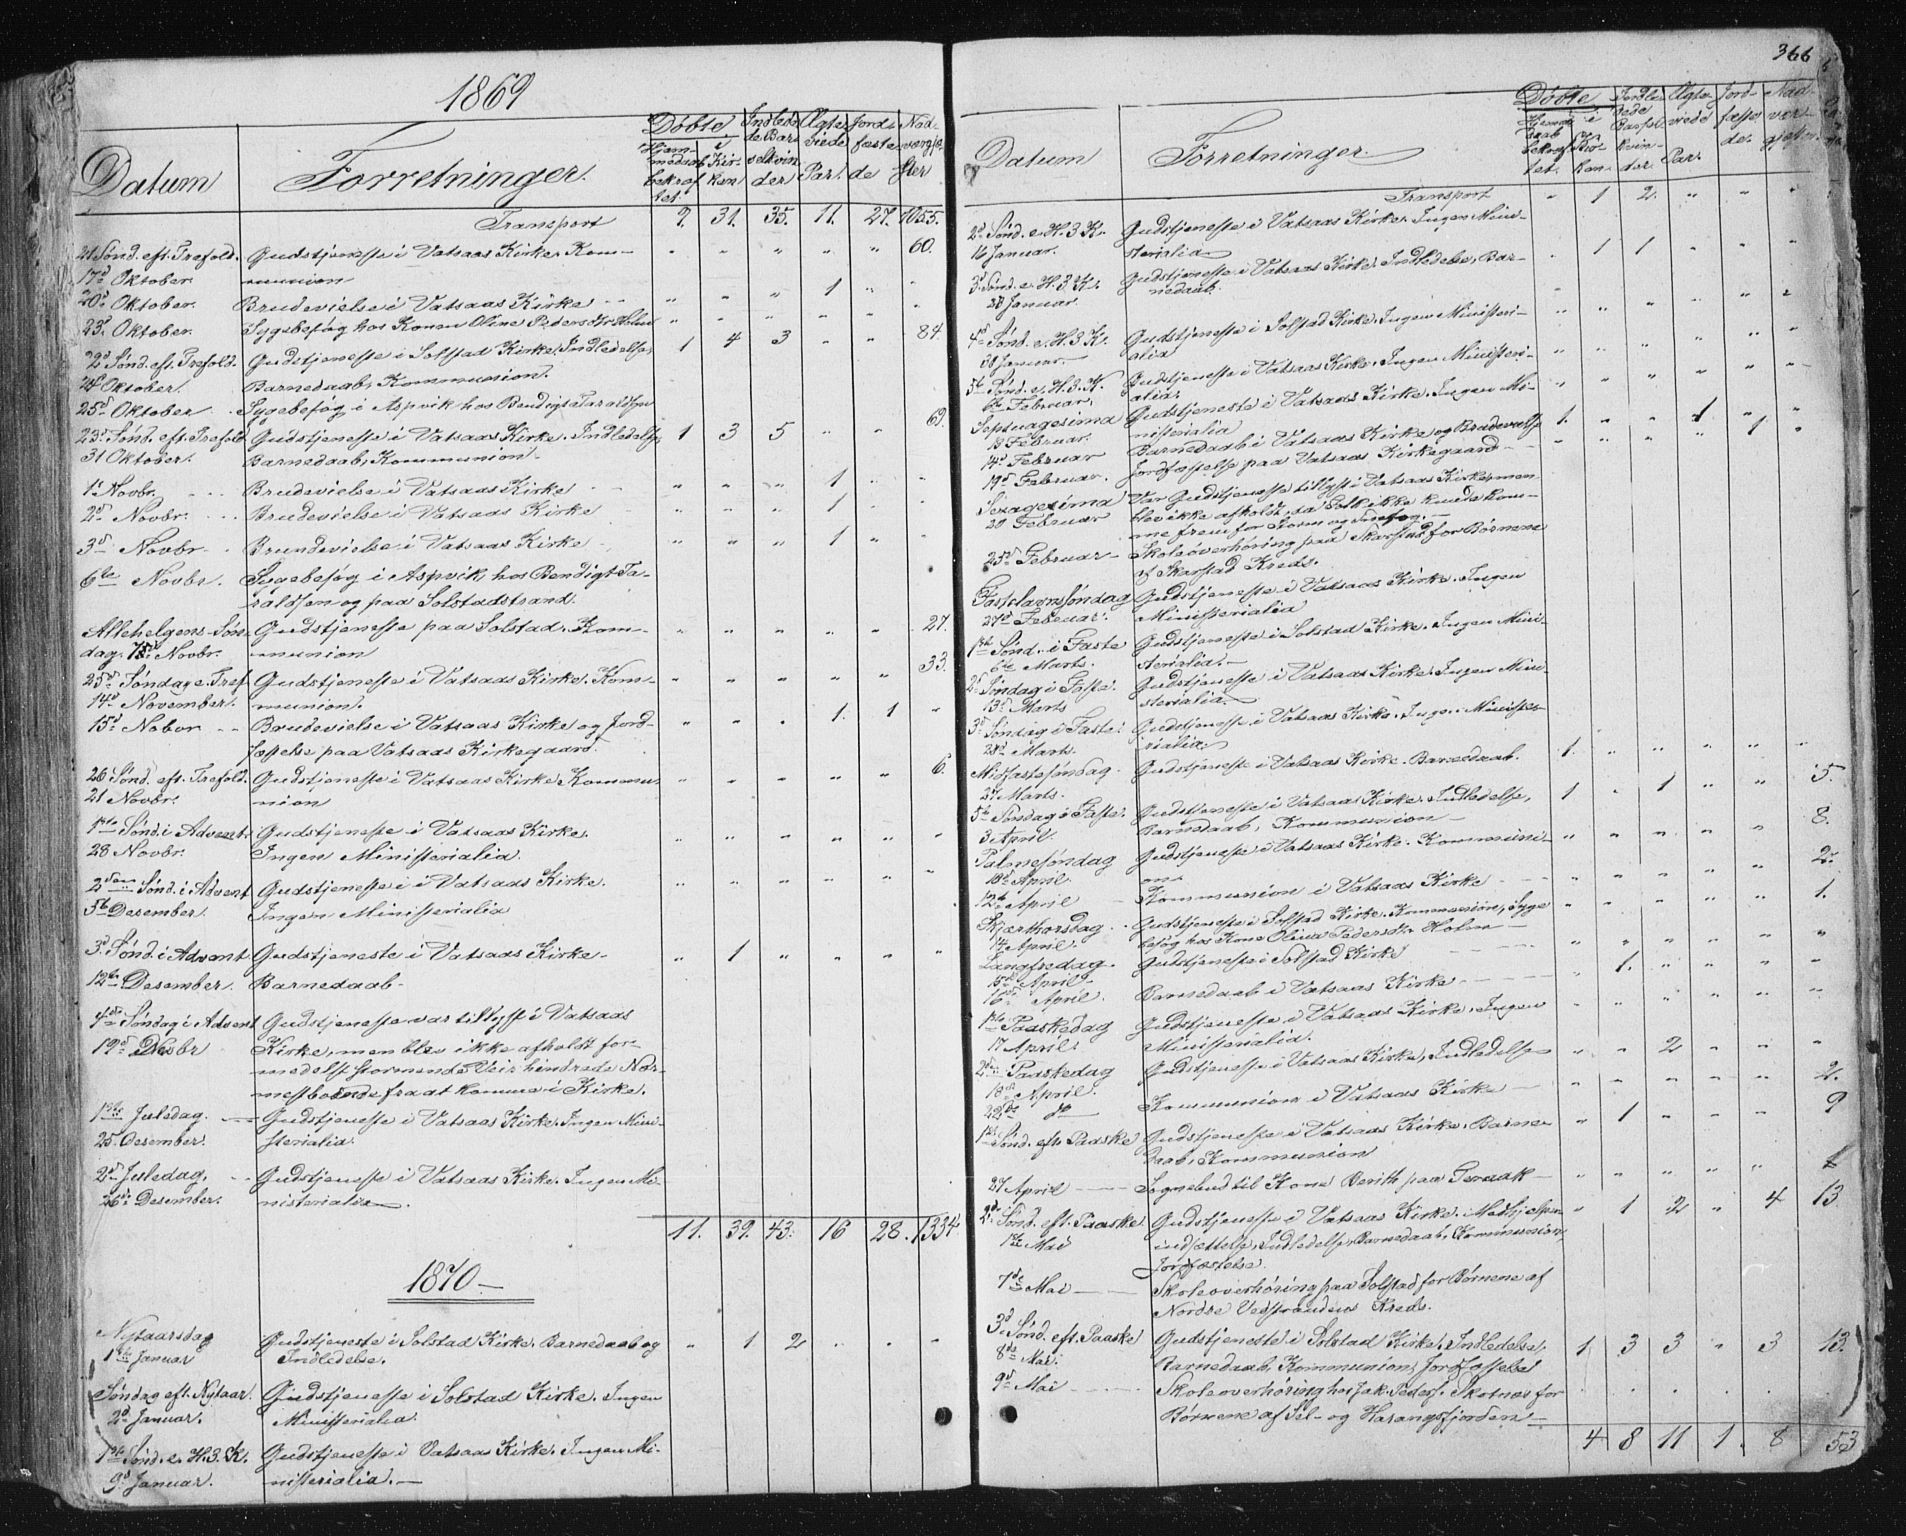 1869
Datum Forretninger. Døbte Hjemmedaab bekræftet i Kirken Indledede Barselkvinder Ægteviede Par. Jordfæstede Nadvergjæster
Transport 9. 31. 35. 11. 27. 1055.
21 Sønd. eft. Trefold. Gudstjeneste i Vatsaas Kirke. Kom- " " " " " 60.
17d Oktober. munion
20d Oktober. Brudevielse i Vatsaas Kirke " " " 1 " "
23d Oktober. Sygebesøg hos Konen Oline Pedersdtr Holm " " " " "
22d Sønd. eft. Trefold. Gudstjeneste i Solstad Kirke. Indledelse, 1 4 3 " " 84.
24d Oktober. Barnedaab, Kommunion.
25d Oktober. Sygebesøg i Aspvik hos Bendigt Taraldsen
23d Sønd. eft. Trefold Gudstjeneste i Vatsaas Kirke. Indledelse, 1 3 5 " " 69.
31 Oktober. Barnedaab, Kommunion.
1ste Novbr. Brudevielse i Vatsaas Kirke " " " 1 " "
2d Novbr. Brudevielse i Vatsaas Kirke " " " 1 " "
3d Novbr. Brundevielse i Vatsaas Kirke " " " 1 " "
6te Novbr. Sygebesøg i Aspvik, hos Bendigt Ta-
raldsen og paa Solstadstrand.
Allehelgens-Søn- Gudstjeneste paa Solstad. Kom- " " " " " 27.
dag. 7de Novbr. munion
25d Søndag e. Tref. Gudstjeneste i Vatsaas Kirke. Kom- " " " " " 33.
14d November. munion.
15d Nobvr Brudevielse i Vatsaas Kirke og Jord- " " " 1. 1 "
fæstelse paa Vatsaas Kirkegaard.
26 Sønd. eft. Trefold. Gudstjeneste i Vatsaas Kirke. Kommu- " " " " " 6.
21 Novbr. nion
1ste Sønd. i Advent. Gudstjeneste i Vatsaas Kirke. " " " " " "
28 Novbr. Ingen Ministerialia.
2den Sønd. i Advent Gudstjeneste i i Vatsaas Kirke. " " " " " "
5te Desember. Ingen Ministerialia
3d Sønd. i Advent Gudstjeneste i Vatsaas Kirke. " 1 " " " "
12te Desember. Barnedaab.
4de Søndag i Advent Gudstjeneste var tillyst i Vatsaas
19de Debr Kirke, men blev ikke afholdt for-
medelst stormende Veir hindrede Nær-
mestboende fra at komme i Kirke.
1ste Juledag. Gudstjeneste i Vatsaas Kirke. Ingen Mini-
25. Desember. sterialia.
2d Juledag, Gudstjeneste i Vatsaas Kirke. Ingen Mi-
26de Desember. nisterialia.
11. 39. 43. 16 28. 1334.
1870.
Nytaarsdag Gudstjeneste i Solstad Kirke. Barnedaab og " 1 2 " " "
1ste Januar Indledelse.
Søndag eft. Nytaar. Gudstjeneste i Solstad Kirke. Ingen
2d Januar. Ministerialia.
1ste Sønd. e. H. 3. K. Gudstjeneste i Vatsaas Kirke. Ingen Mi-
9d Januar. nisterialia.
366
Datum Forretninger. Døbte Hjemmedaab bekræftet. i Kirken. Indledede Barselkvinder. Ægteviede Par. Jordfæstede. Nadvergjester.
Transport " 1 2. " " "
2d Sønd. e. H. 3 K. Gudstjeneste i Vatsaas Kirke. Ingen Mini-
16 Januar. sterialia
3d Sønd. e. H. 3 K. Gudstjeneste i Vatsaas Kirke. Indledelse, Bar- " 1 1 " " "
23 Januar. nedaab.
4d Sønd. e. H. 3 K. Gudstjeneste i Solstad Kirke. Ingen Ministeri- " " " " " "
30 Januar. alia
5te Sønd. e. H. 3. K. Gudstjeneste i Vatsaas Kirke. Ingen Ministeri- " " " " " "
6te Februar. alia.
Septuagesima Gudstjeneste i Vatsaas Kirke. Ingen Mi- " " " " " "
13 Februar. nisterialia
14d Februar Barnedaab i Vatsaas Kirke og Brudevielse 1. " " 1 " "
19d Februar. Jordfæstelse paa Vatsaas Kirkegaard " " " " 1 "
Sexagesima Var Gudstjeneste tillyst i Vatsaas Kirke, men
20 Februar blev ikke afholdt, da Folk ikke kunde kom-
me frem for Storm og Snefog.
25d Februar Skoleoverhøring paa Skarstad for Børnene
af Skarstad Kreds.
Fastelavnsøndag Gudstjeneste i Vatsaas Kirke. Ingen
27d Februar. Ministerialia
1ste Sønd. i Faste Gudstjeneste i Solstad Kirke. Ingen Mini-
6te Marts. sterialia.
2d Søndag i Faste. Gudstjeneste i Vatsaas Kirke. Ingen Mini-
13d Marts sterialia.
3d Søndag i Faste. Gudstjeneste i Vatsaas Kirke. Ingen Ministe-
20d Marts. rialia.
Midfastesøndag. Gudstjeneste i Vatsaas Kirke. Barnedaab. 1. " " " " "
27 Marts.
5te Søndag i Faste. Gudstjeneste i Vatsaas Kirke. Indledelse, 1 " 1 " " 5.
3. April. Barnedaab, Kommunion
Palmesøndag Gudstjeneste i Vatsaas Kirke. Kommuni- " " " " " 8.
10d April. on.
12te April Kommunion i Vatsaas Kirke " " " " " 2.
Skjærthorsdag. Gudstjeneste i Solstad Kirke. Kommunion, Syge- " " " " " 1.
14 April. besøg hos Kone Olina Pedersdr. Holm
Langfredag. Gudstjeneste i Solstad Kirke " " " " " "
15de April.
16de April. Barnedaab i Vatsaas Kirke " 1. " " " "
1ste Paaskedag Gudstjeneste i Vatsaas Kirke. Ingen " " " " " "
17 April. Ministerialia.
2den Paaskedag Gudstjeneste i Vatsaas Kirke, Indledelse " " 2 " " "
18de April.
22de do Kommunion i Vatsaas Kirke " " " " " 2.
1ste Sønd. eft. Paaske Gudstjeneste i Vatsaas Kirke. Barne- " 1 " " " 9
daab, Kommunion
27 April Sognebud til Kone Berith paa " " " " " 1
2d Sønd. eft. Paaske Gudstjeneste i Vatsaas Kirke. Medhjelper- " 1 2 " 4 13
1ste Mai indsættelse, Indledelse, Barnedaab, Kommunion,
Jordfæstelse.
7de Mai Skoleoverhøring paa Solstad for Børnene af
Nordre Vedstrandens Kreds.
3d Sønd. eft. Paaske Gudstjeneste i Solstad Kirke. Indledelse, 1 3 3 " 3 13.
8de Mai. Barnedaab, Kommunion, Jordfæstelse
9d Mai Skoleoverhøring hos Jak. Peders. Skotnæs for
Børnene af Sel- og Harangsfjorden
4 8 11 1. 8 53